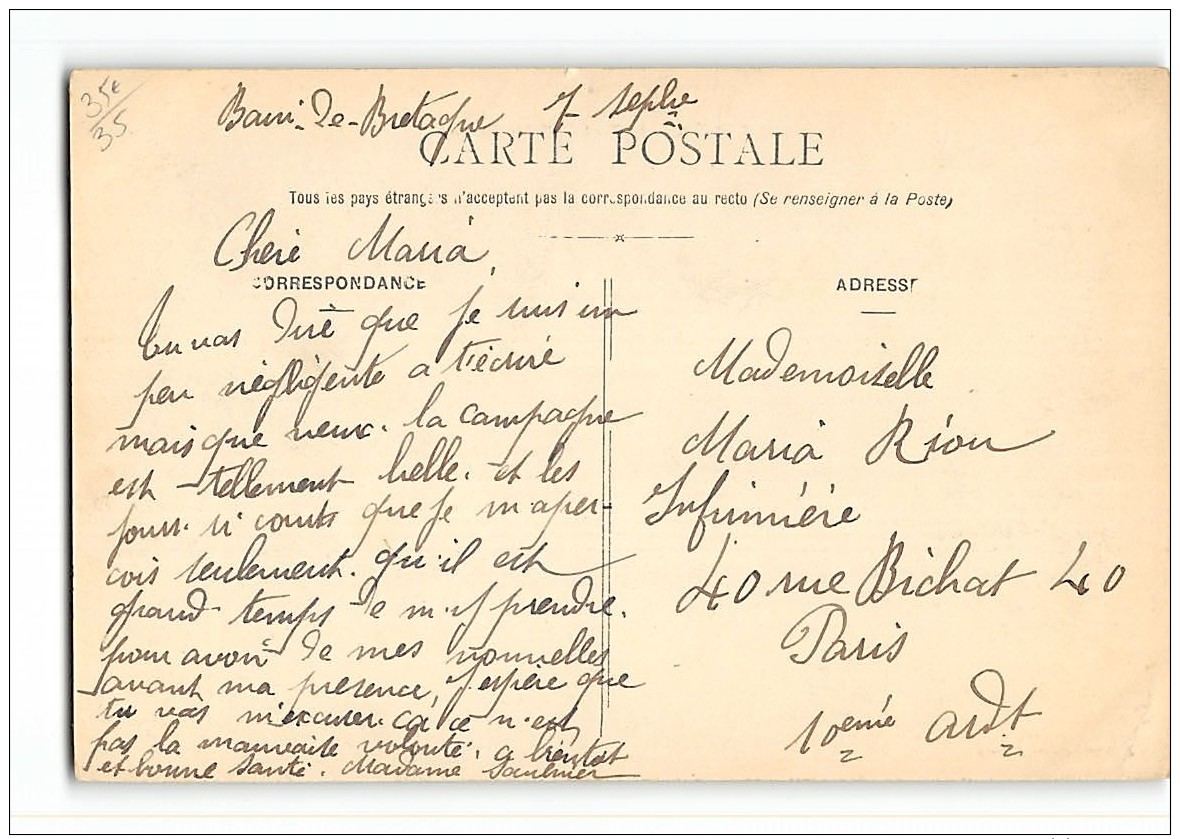 35e
35
Bain-de-Bretagne 7 Septbre
CARTE POSTALE
Tous les pays étrangers n'acceptent pas la correspondance au recto (Se renseigner à la Poste)
Cheré Maria,
CORRESPONDANCE
Tu vas diré que je suis un
peu négligente a t'écriré
mais que veux. la campagne
est tellement belle. et les
jours si courts que je m'aper-
cois seulement. qu'il est
grand temps de m'y prendre.
pour avoir de mes nouvelles
avant ma presence, j'espère que
tu vas m'excuser. ca ce n'est
pas la mauvaise volonté. a bientot
et bonne santé. Madame Saulnier
ADRESSE
Mademoiselle
Maria Riou
Infirmiéré
40 rue Bichat 40
Paris
10emé ardt